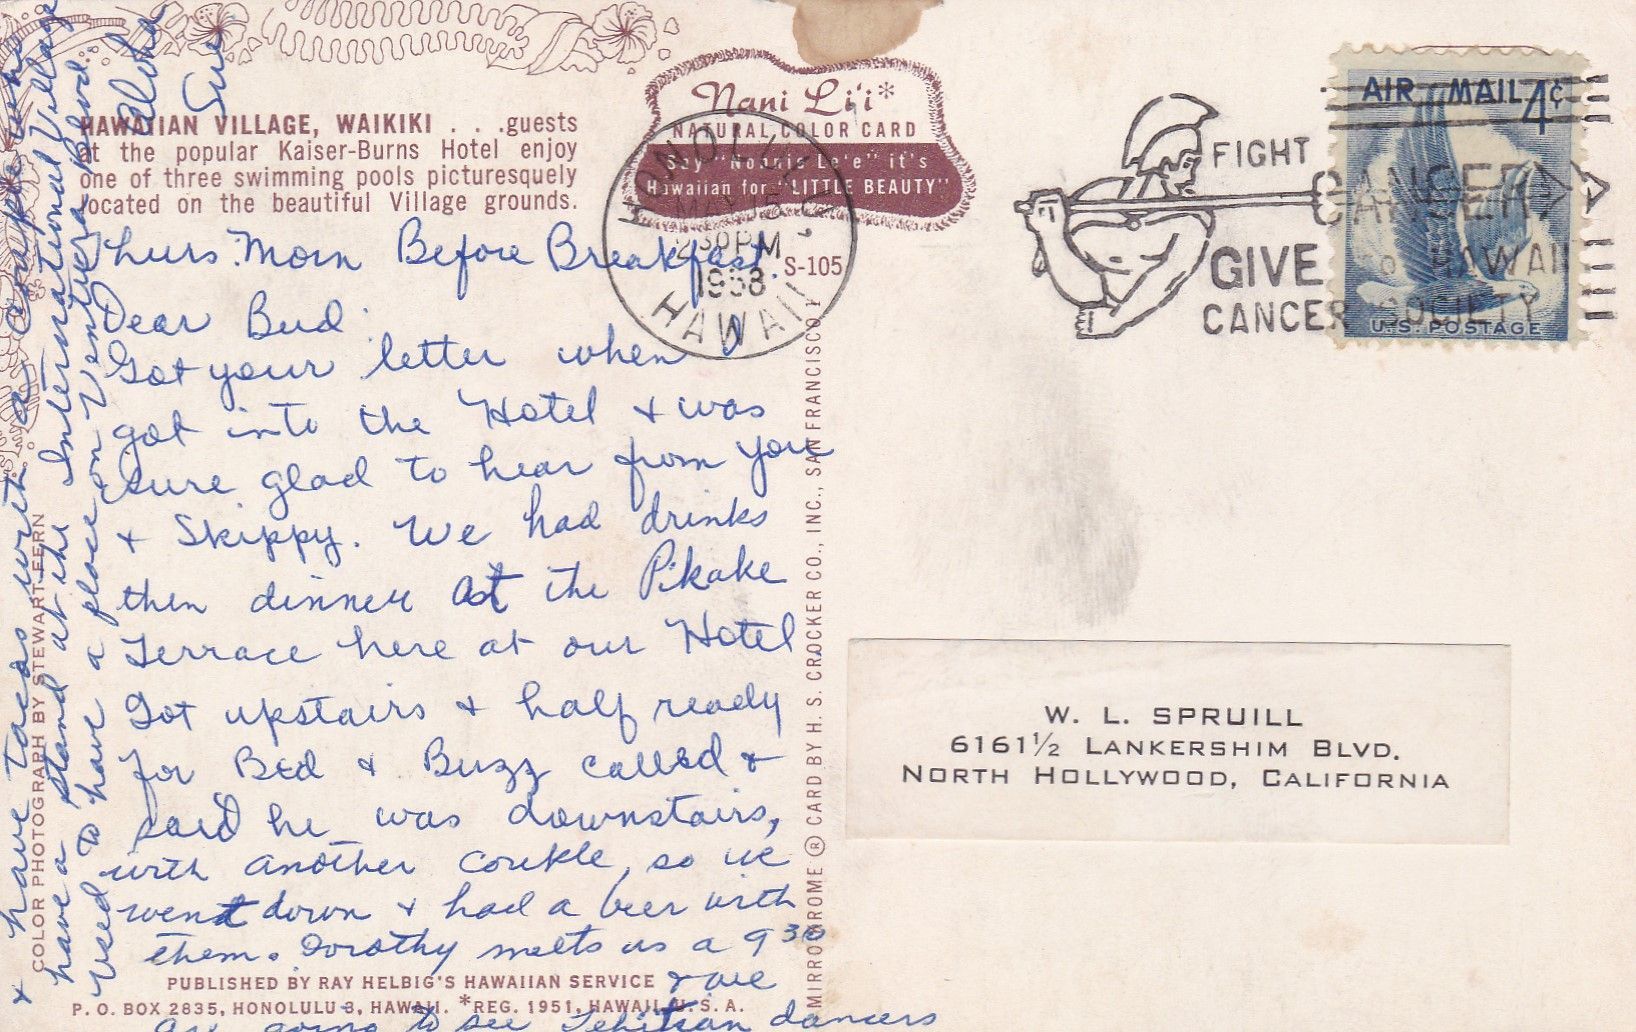 HAWAIIAN VILLAGE, WAIKIKI . . .guests
at the popular Kaiser-Burns Hotel enjoy
one of three swimming pools picturesquely
located on the beautiful Village grounds.
Nani Li'i*
NATURAL COLOR CARD
Say "Nonnie Le'e" it's
Hawaiian for "LITTLE BEAUTY"
HONOLULU
MAY 15
230 PM
1958
HAWAII
S-105
FIGHT
CANCER
GIVE
TO HAWAII
CANCER SOCIETY
AIR MAIL 4¢
U.S. POSTAGE
Thurs. Morn Before Breakfast.
Dear Bud
Got your letter when I
got into the Hotel & was
sure glad to hear from you
& Skippy. We had drinks
then dinner at the Pikake
Terrace here at our Hotel
Got upstairs & half ready
for Bed & Buzz called &
said he was downstairs,
with another couple, so we
went down & had a beer with
them. Dorothy meets us a 9 30
& we
are going to see Tehitian dancers
& have tacos with a couple who
have a stand at the International Village
used to have a place on Ventura Blvd.
Aloha
Sue
COLOR PHOTOGRAPH BY STEWART FERN
PUBLISHED BY RAY HELBIG'S HAWAIIAN SERVICE
P. O. BOX 2835, HONOLULU 3, HAWAII. *REG. 1951, HAWAII U. S. A.
MIRRO-KROME ® CARD BY H. S. CROCKER CO., INC., SAN FRANCISCO 1
W. L. SPRUILL
6161½ LANKERSHIM BLVD.
NORTH HOLLYWOOD, CALIFORNIA